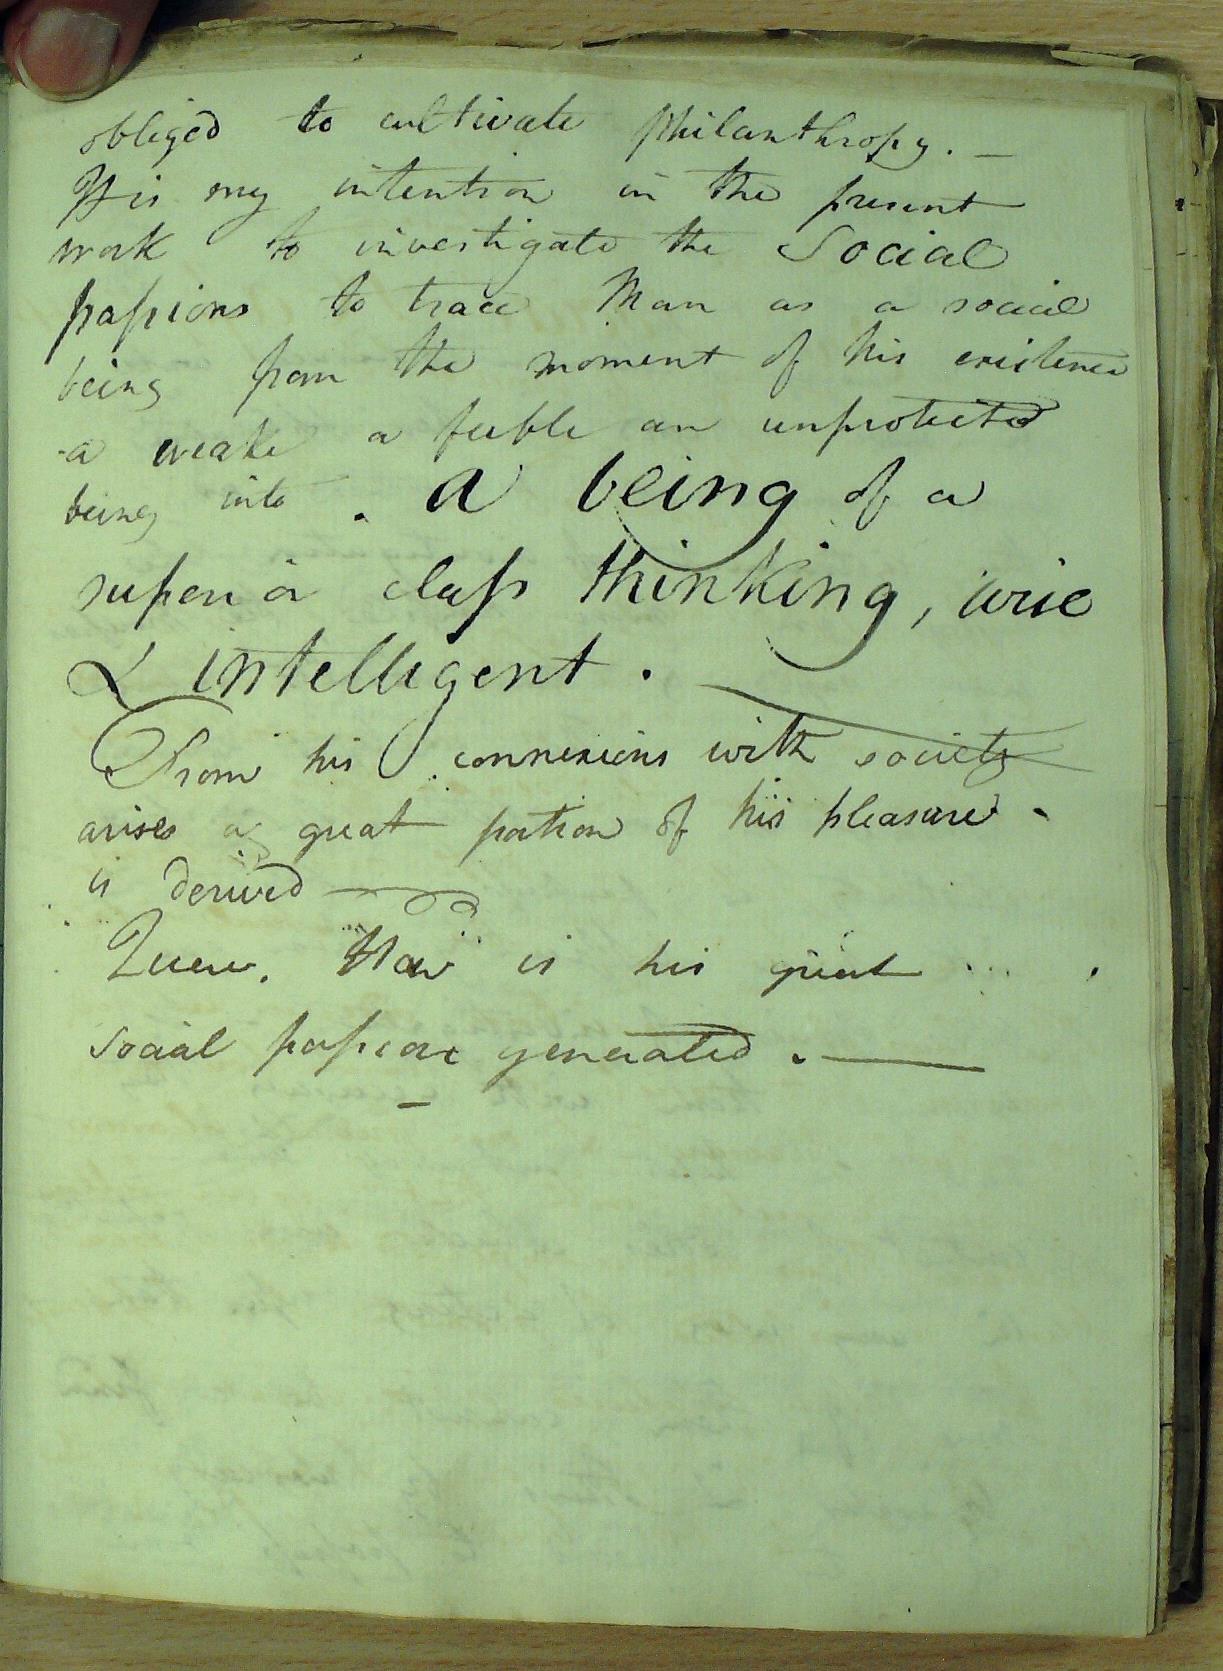 obliged to cultivate philanthropy. —
It is my intention in the present
work to investigate the Social
passions to trace Man as a social
being from the moment of his existence
a weak a feeble an unprotected
being into a being of a
superior class thinking, wise
& intelligent.
From his connexions with society
arises a great portion of his pleasure
is derived
How is his great
social passion generated. —